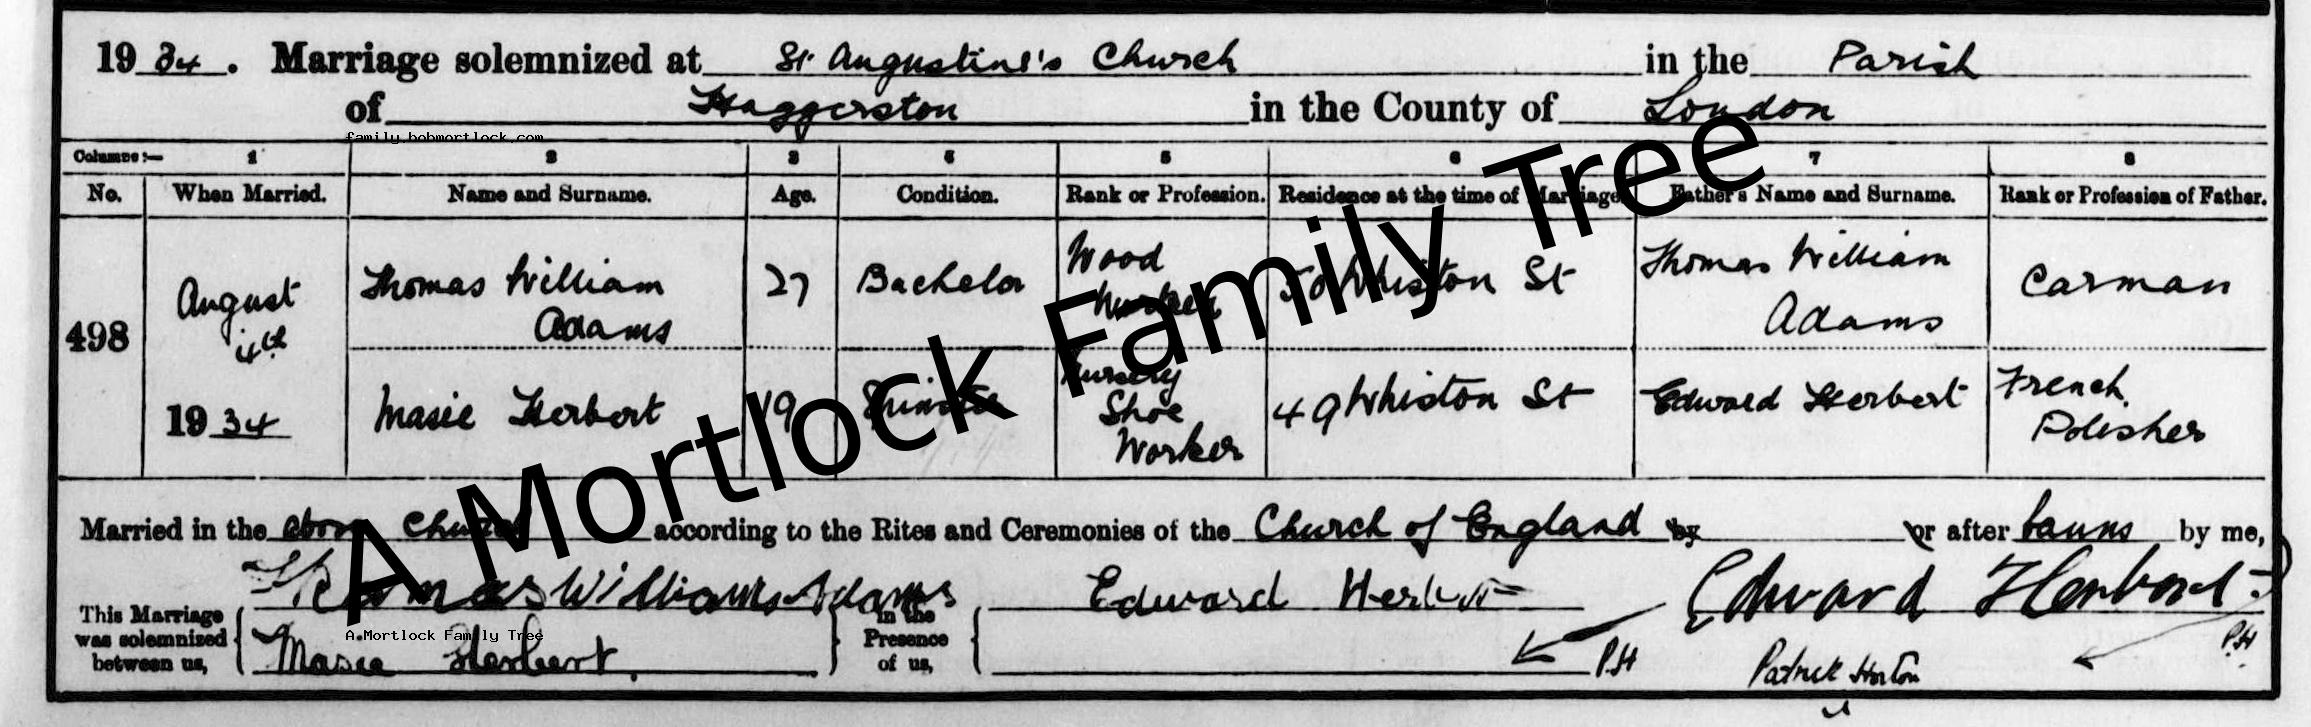 1934. Marriage solemnized at St. Augustine's Church in the Parish
of Haggerston in the County of London
family.bobmortlock.com
Columns:— 1 2 3 4 5 6 7 8
No. When Married. Name and Surname. Age. Condition. Rank or Profession. Residence at the time of Marriage. Father's Name and Surname. Rank or Profession of Father.
498
August
4th
1934
Thomas William
Adams
27
Bachelor
Wood
Worker
Whiston St
Thomas William
Adams
Carman
Masie Herbert
19
Spinster
Nursery
Shoe
Worker
49 Whiston St
Edward Herbert
French
Polisher
Married in the above Church according to the Rites and Ceremonies of the Church of England by or after banns by me,
This Marriage
was solemnized
between us,
Thomas William Adams
Masie Herbert.
in the
Presence
of us,
Edward Herbert
Edward Herbert
P.H
Patrick Horton
P.H.
A Mortlock Family Tree
A Mortlock Family Tree